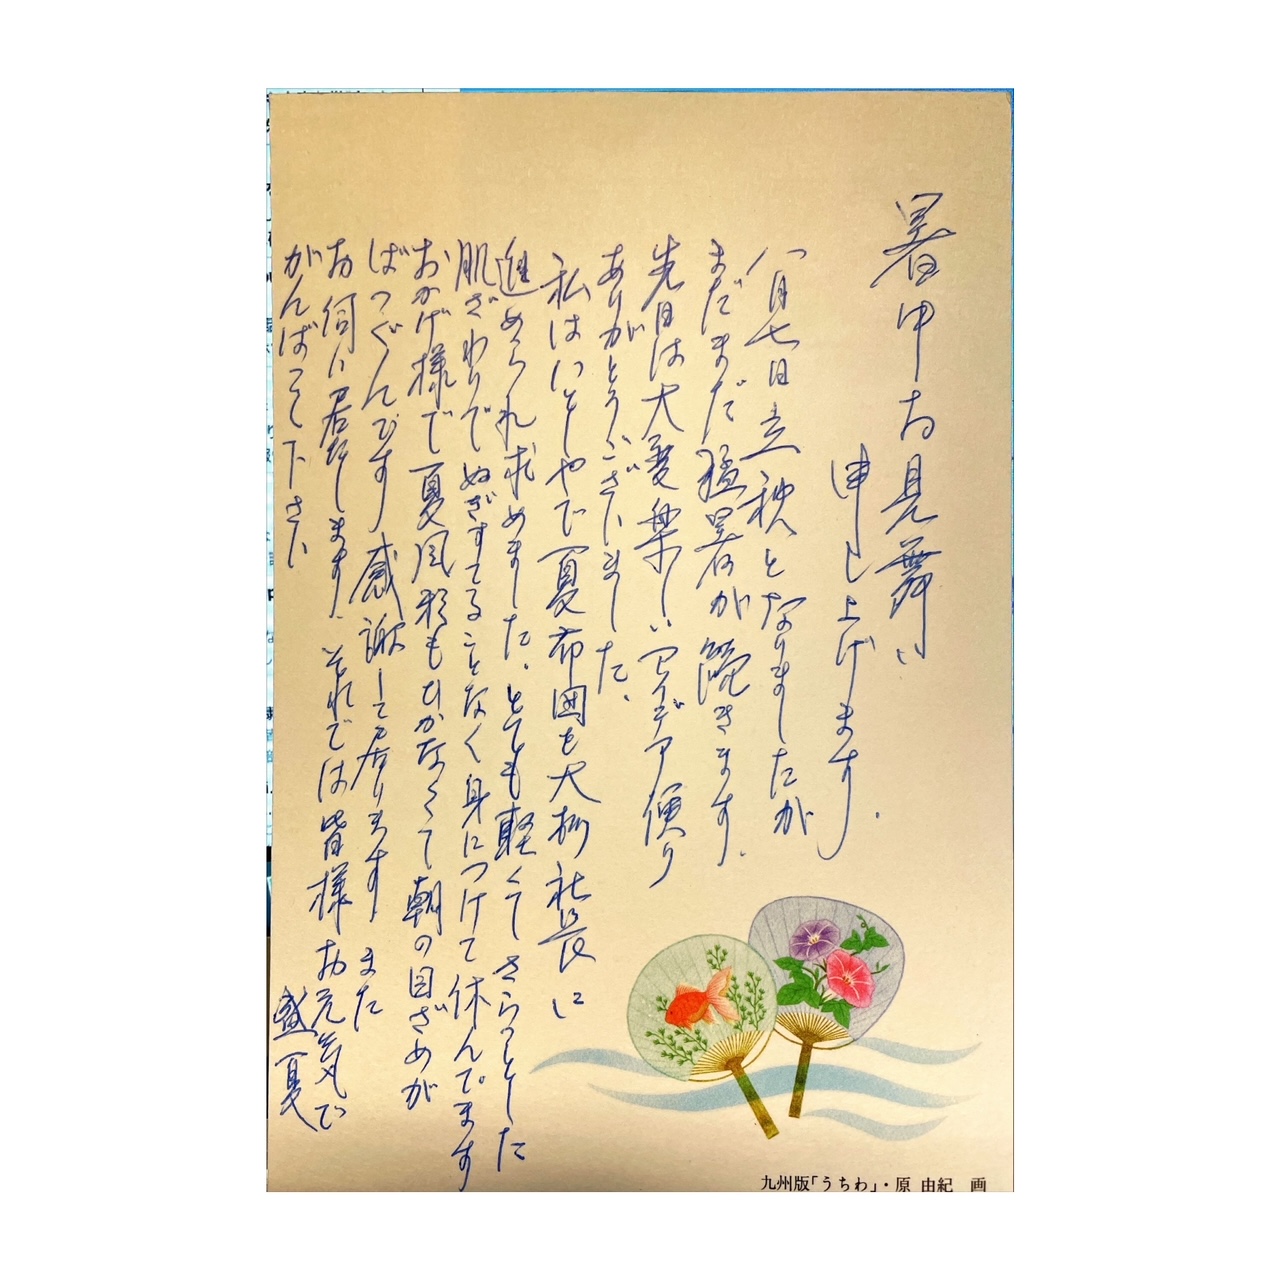 暑中お見舞い
申し上げます。
八月七日立秋となりましたが
まだまだ猛暑が続きます。
先日は大変楽しいアイデア便り
ありがとうございました、
私はいとしやで夏布団を大栁社長に
進められ求めました、とても軽くてさらっとした
肌ざわりでぬぎすてることなく身につけて休んでます
おかげ様で夏風邪もひかなくて朝の目ざめが
ばつぐんです感謝して居りますまた
お伺い致します、それでは皆様お元気で
がんばって下さい
盛夏
九州版「うちわ」・原 由紀 画